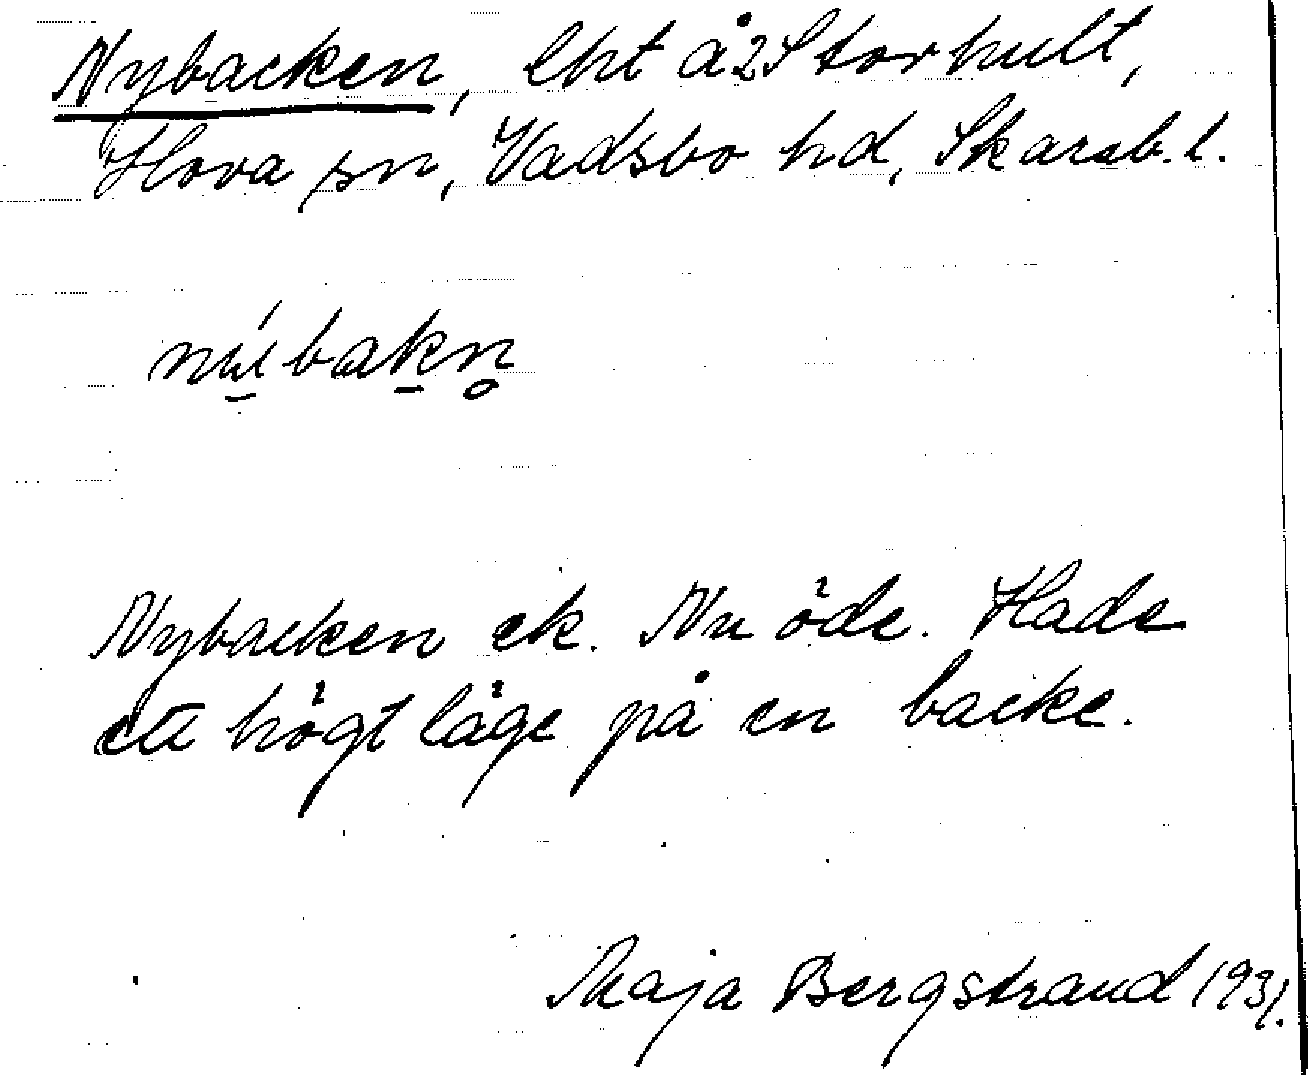 Nybacken, lht å 2 Storhult,
Hova sn, Vadsbo hd, Skarab. l.
nybakn̥
Nybacken ek. Nu öde. Hade
ett högt läge på en backe.
Maja Bergstrand 1931.